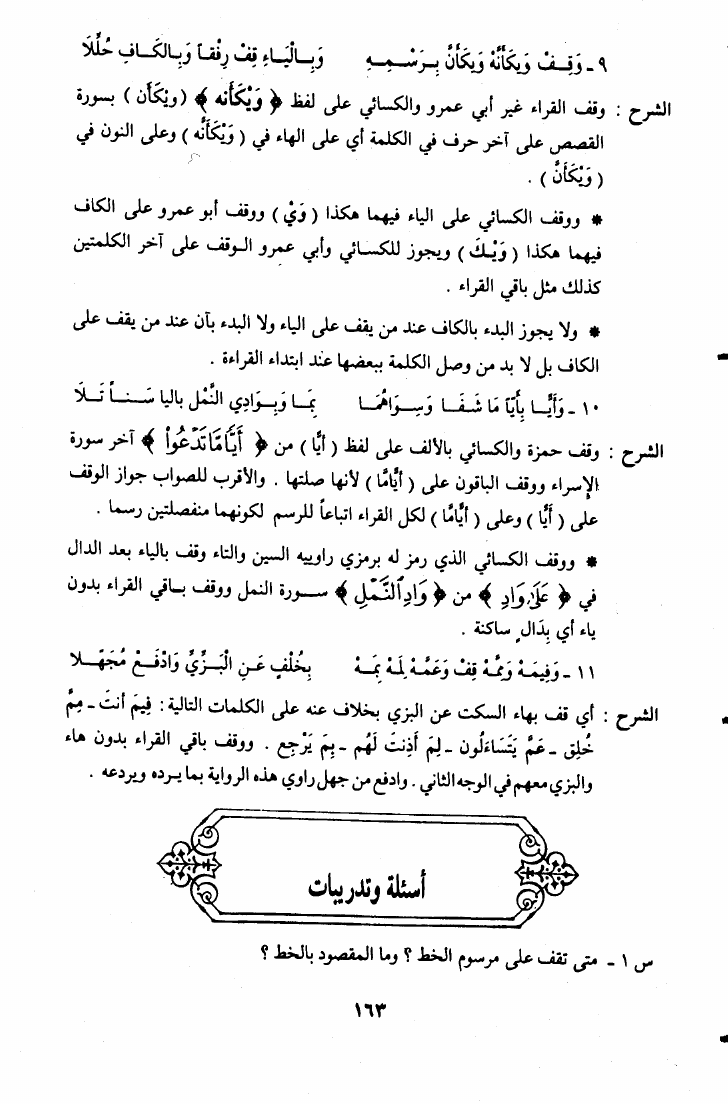 ٩ - وَقِفْ وَيْكَأَنَّهْ وَيْكَأَنَّ بِرَسْمِهِ وَبِالْيَاءِ قِفْ رِفْقاً وَبِالكَافِ حُلِّلَا
الشرح : وقف القراء غير أبي عمرو والكسائي على لفظ ﴿ وَيْكَأَنه ﴾ ( ويْكَأن ) بسورة
القصص على آخر حرف في الكلمة أي على الهاء في ( وَيْكَأَنَّه ) وعلى النون في
( وَيْكَأَنَّ ) .
* ووقف الكسائي على الياء فيهما هكذا ( وَيْ ) ووقف أبو عمرو على الكاف
فيهما هكذا ( وَيْـكَ ) ويجوز للكسائي وأبي عمرو الوقف على آخر الكلمتين
كذلك مثل باقي القراء .
* ولا يجوز البدء بالكاف عند من يقف على الياء ولا البدء بآن عند من يقف على
الكاف بل لا بد من وصل الكلمة ببعضها عند ابتداء القراءة .
١٠ - وَأَيّـا بِأَيّاً مَا شَـفَـا وَسِـوَاهُمَـا بِمَـا وَبِـوَادِي النَّمْلِ باليا سَـنـاً تَـلَا
الشرح : وقف حمزة والكسائي بالألف على لفظ ( أيًّا ) من ﴿ أَيًّا مَّا تَدْعُواْ ﴾ آخر سورة
الإسراء ووقف الباقون على ( أَيًّامًّا ) لأنها صلتها . والأقرب للصواب جواز الوقف
على ( أيًّا ) وعلى ( أيًّامًّا ) لكل القراء اتباعاً للرسم لكونهما منفصلتين رسما .
* ووقف الكسائي الذي رمز له برمزي راوييه السين والتاء وقف بالياء بعد الدال
في ﴿ عَلَىٰ وَادِ ﴾ من ﴿ وَادِ ٱلنَّمْلِ ﴾ سـورة النمل ووقف باقي القراء بدون
ياء أي بِدَالٍ ساكنة .
١١ - وَفِيمَهْ وَمِمَّهْ قِفْ وَعَمَّهْ لِمَهْ بِمَهْ بِخُلْفٍ عَنِ الْبَزِّيِّ وَادْفَعْ مُجَهِّلَا
الشرح : أي قف بهاء السكت عن البزي بخلاف عنه على الكلمات التالية : فِيمَ أنتَ - مِمَّ
خُلِق - عَمَّ يَتَسَاءَلُون - لِمَ أَذِنتَ لَهُم - بِمَ يَرْجِع . ووقف باقي القراء بدون هاء
والبزي معهم في الوجه الثاني . وادفع من جهل راوي هذه الرواية بما يرده ويردعه .
أسئلة وتدريبات
س ١ - متى تقف على مرسوم الخط ؟ وما المقصود بالخط ؟
١٦٣